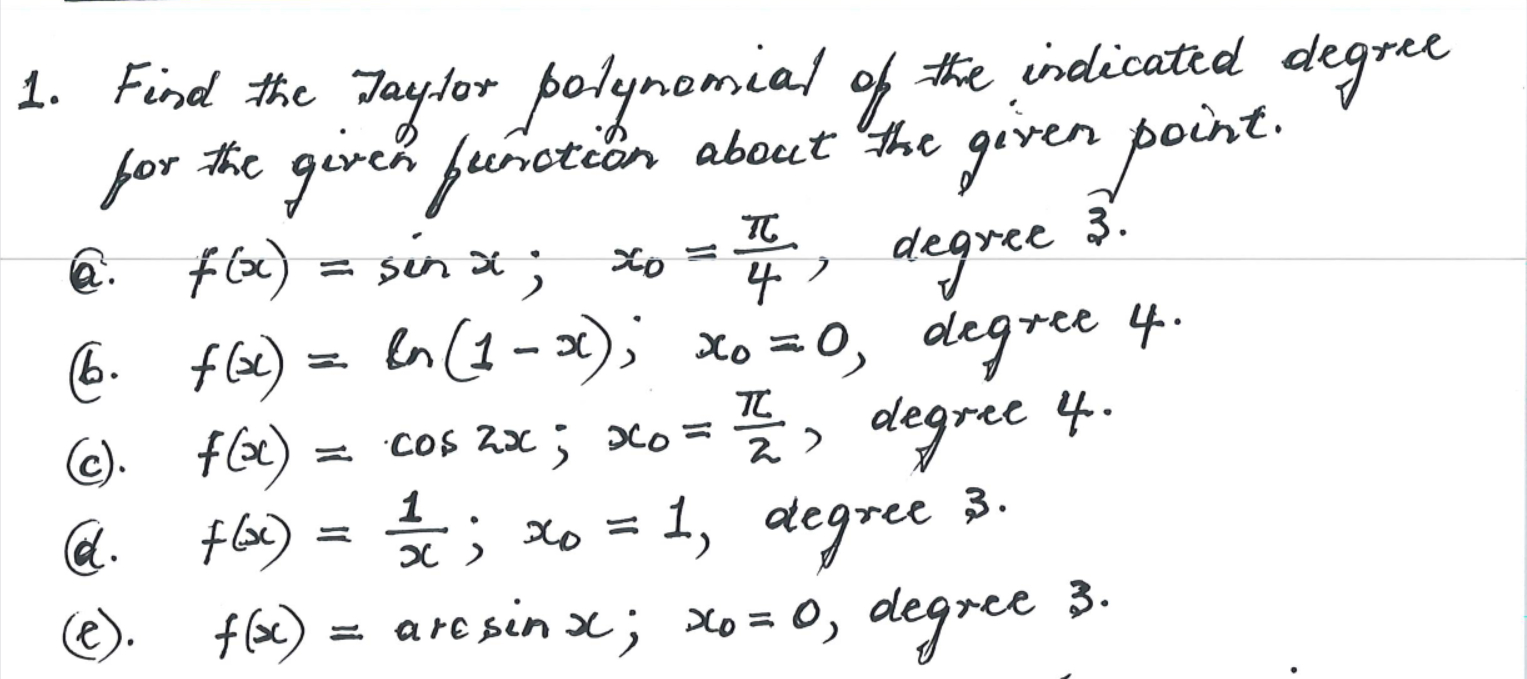 1. Find the Taylor polynomial of the indicated degree
for the given function about the given point.
(a. f(x) = sin x; x₀ = π/4, degree 3.
(b. f(x) = ln(1 - x); x₀ = 0, degree 4.
(c). f(x) = cos 2x; x₀ = π/2, degree 4.
(d. f(x) = 1/x; x₀ = 1, degree 3.
(e). f(x) = arcsin x; x₀ = 0, degree 3.